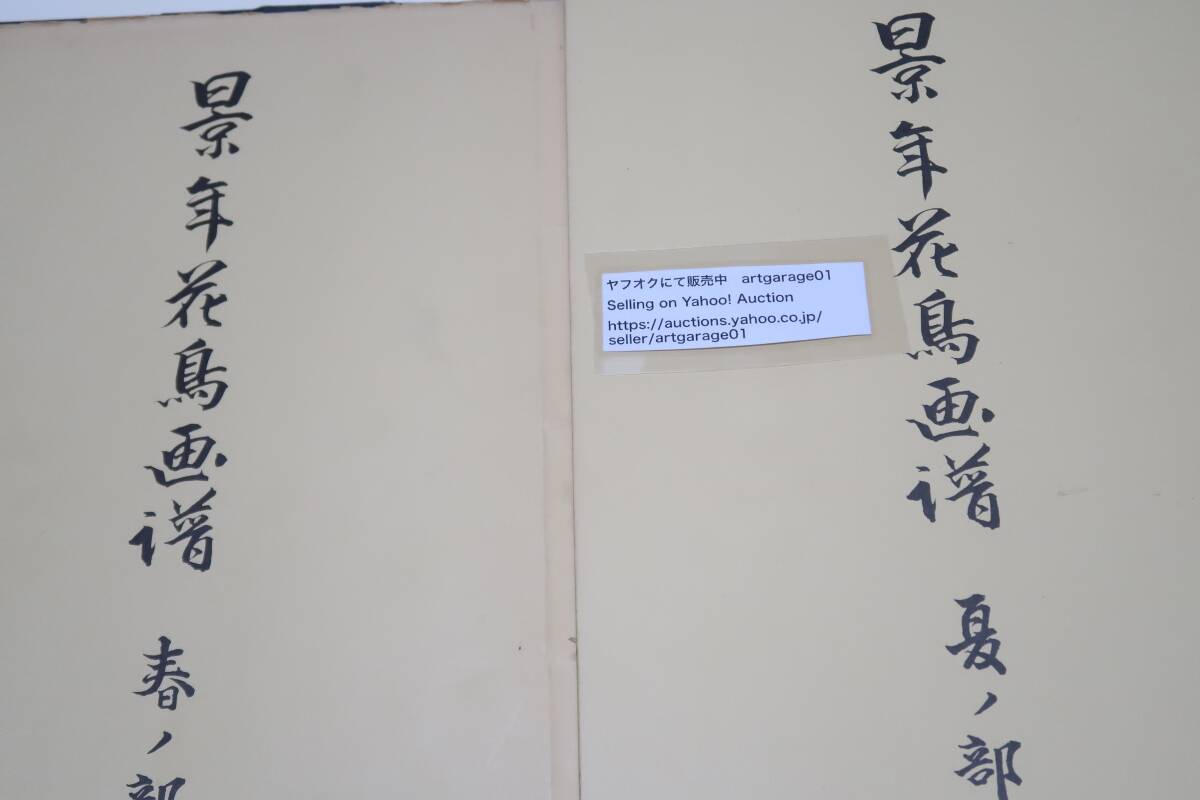 景年花鳥画譜 春ノ部
ヤフオクにて販売中 artgarage01
Selling on Yahoo! Auction
https://auctions.yahoo.co.jp/
seller/artgarage01
景年花鳥画譜 夏ノ部